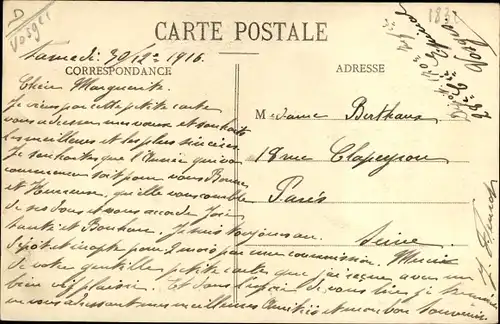 D
Vosges
CARTE POSTALE
1832
Samedi 30/12 1916
CORRESPONDANCE
ADRESSE
Chère Marguerite
Je viens par cette petite carte
vous adresser mes vœux et souhaits
les meilleurs et les plus sincères
Je souhaite que l'Année qui va
commencer soit pour vous Bonne
et Heureuse, qu'elle vous comble
de ses dons et vous accorde Joie
santé et Bonheur. Je suis toujours au
Dépôt et inapte pour 2 mois par une commission. Merci
de votre gentille petite carte que j'ai reçue avec un
bien vif plaisir. Et dans l'espoir de vous lire je termine
en vous adressant mes meilleures Amitiés et mon bon souvenir
Madame Berthaus
18 rue Clapeyron
Paris
Seine
Epinal
Vosges